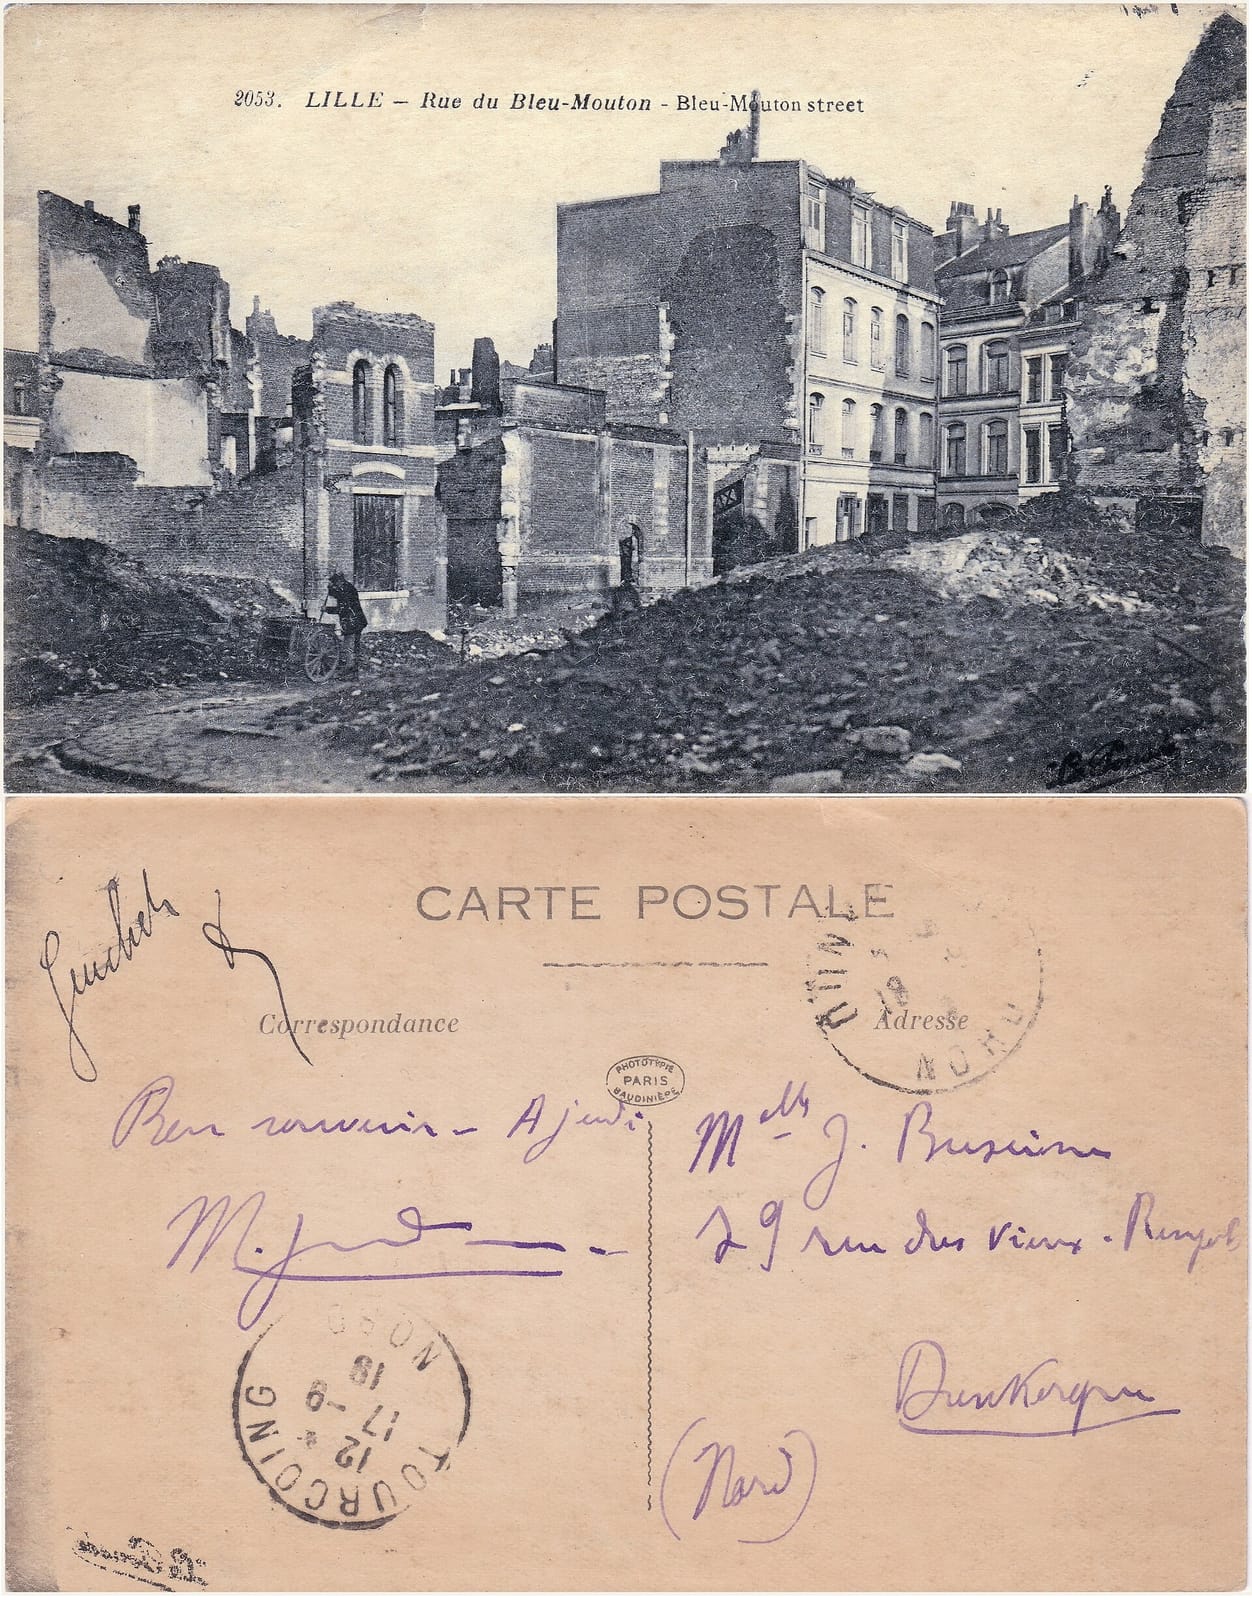 2053. LILLE – Rue du Bleu-Mouton - Bleu-Mouton street
CARTE POSTALE
Correspondance
Adresse
PHOTOTYPIE
PARIS
BAUDINIÈRE
NORD
Bon souvenir – A jeudi
Melle J.
29 rue des Vieux - Remparts
Dunkerque
(Nord)
TOURCOING
NORD
12
17 - 9
19